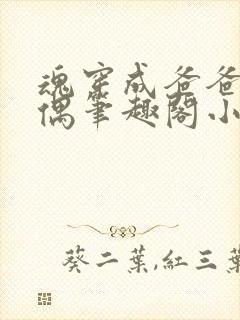 魂穿成爸爸
偶筆趣閣小
葵二葉,紅三葉